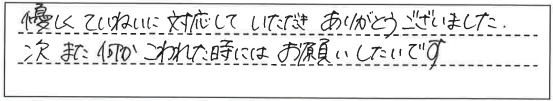 優しくていねいに対応していただきありがとうございました.
次また何かこわれた時にはお願いしたいです